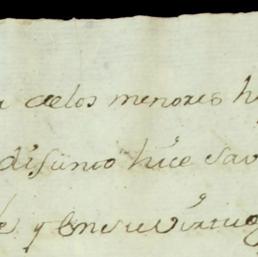 a de los menores h
difunto hise sav
e y en su virtu